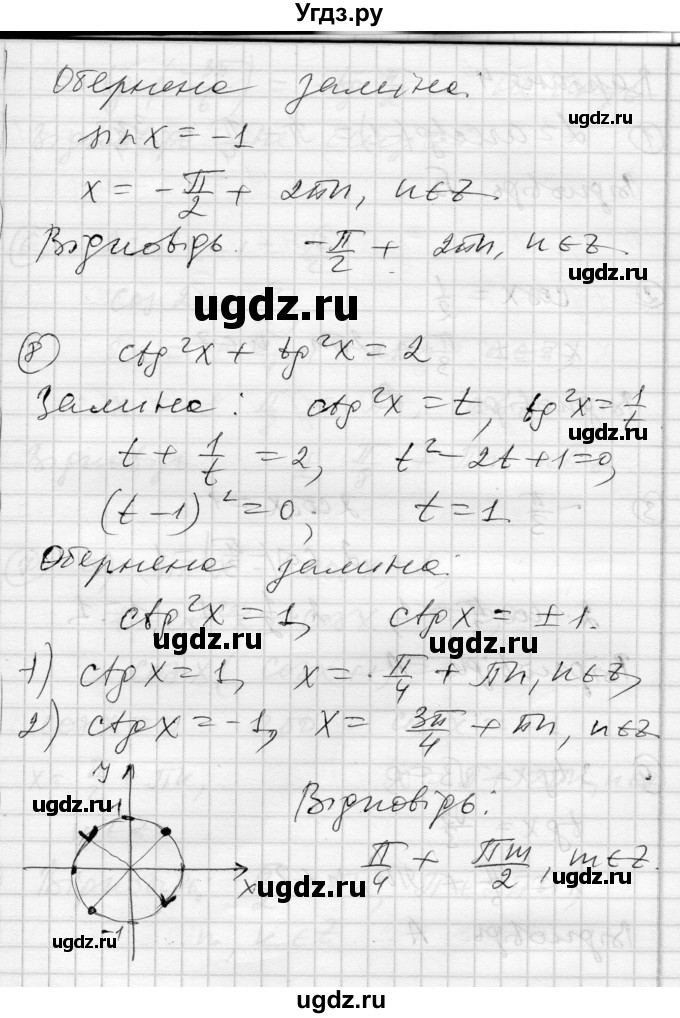 Угдз.ру
Обернена заміна:
sin x = -1
x = -π/2 + 2πn, n∈Z.
Відповідь. -π/2 + 2πn, n∈Z.
ugdz.ru
ugdz.ru
ugdz.ru
⑧ ctg²x + tg²x = 2
Заміна: ctg²x = t, tg²x = 1/t
ugdz.ru
t + 1/t = 2, t² - 2t + 1 = 0,
(t - 1)² = 0; t = 1.
Обернена заміна:
ctg²x = 1, ctg x = ±1.
ugdz.ru
ugdz.ru
1) ctg x = 1, x = π/4 + πn, n∈Z,
2) ctg x = -1, x = 3π/4 + πn, n∈Z
y
1
ugdz.ru
Відповідь:
π/4 + πm/2, m∈Z.
x
ugdz.ru
ugdz.ru
-1
ugdz.ru
ugdz.ru